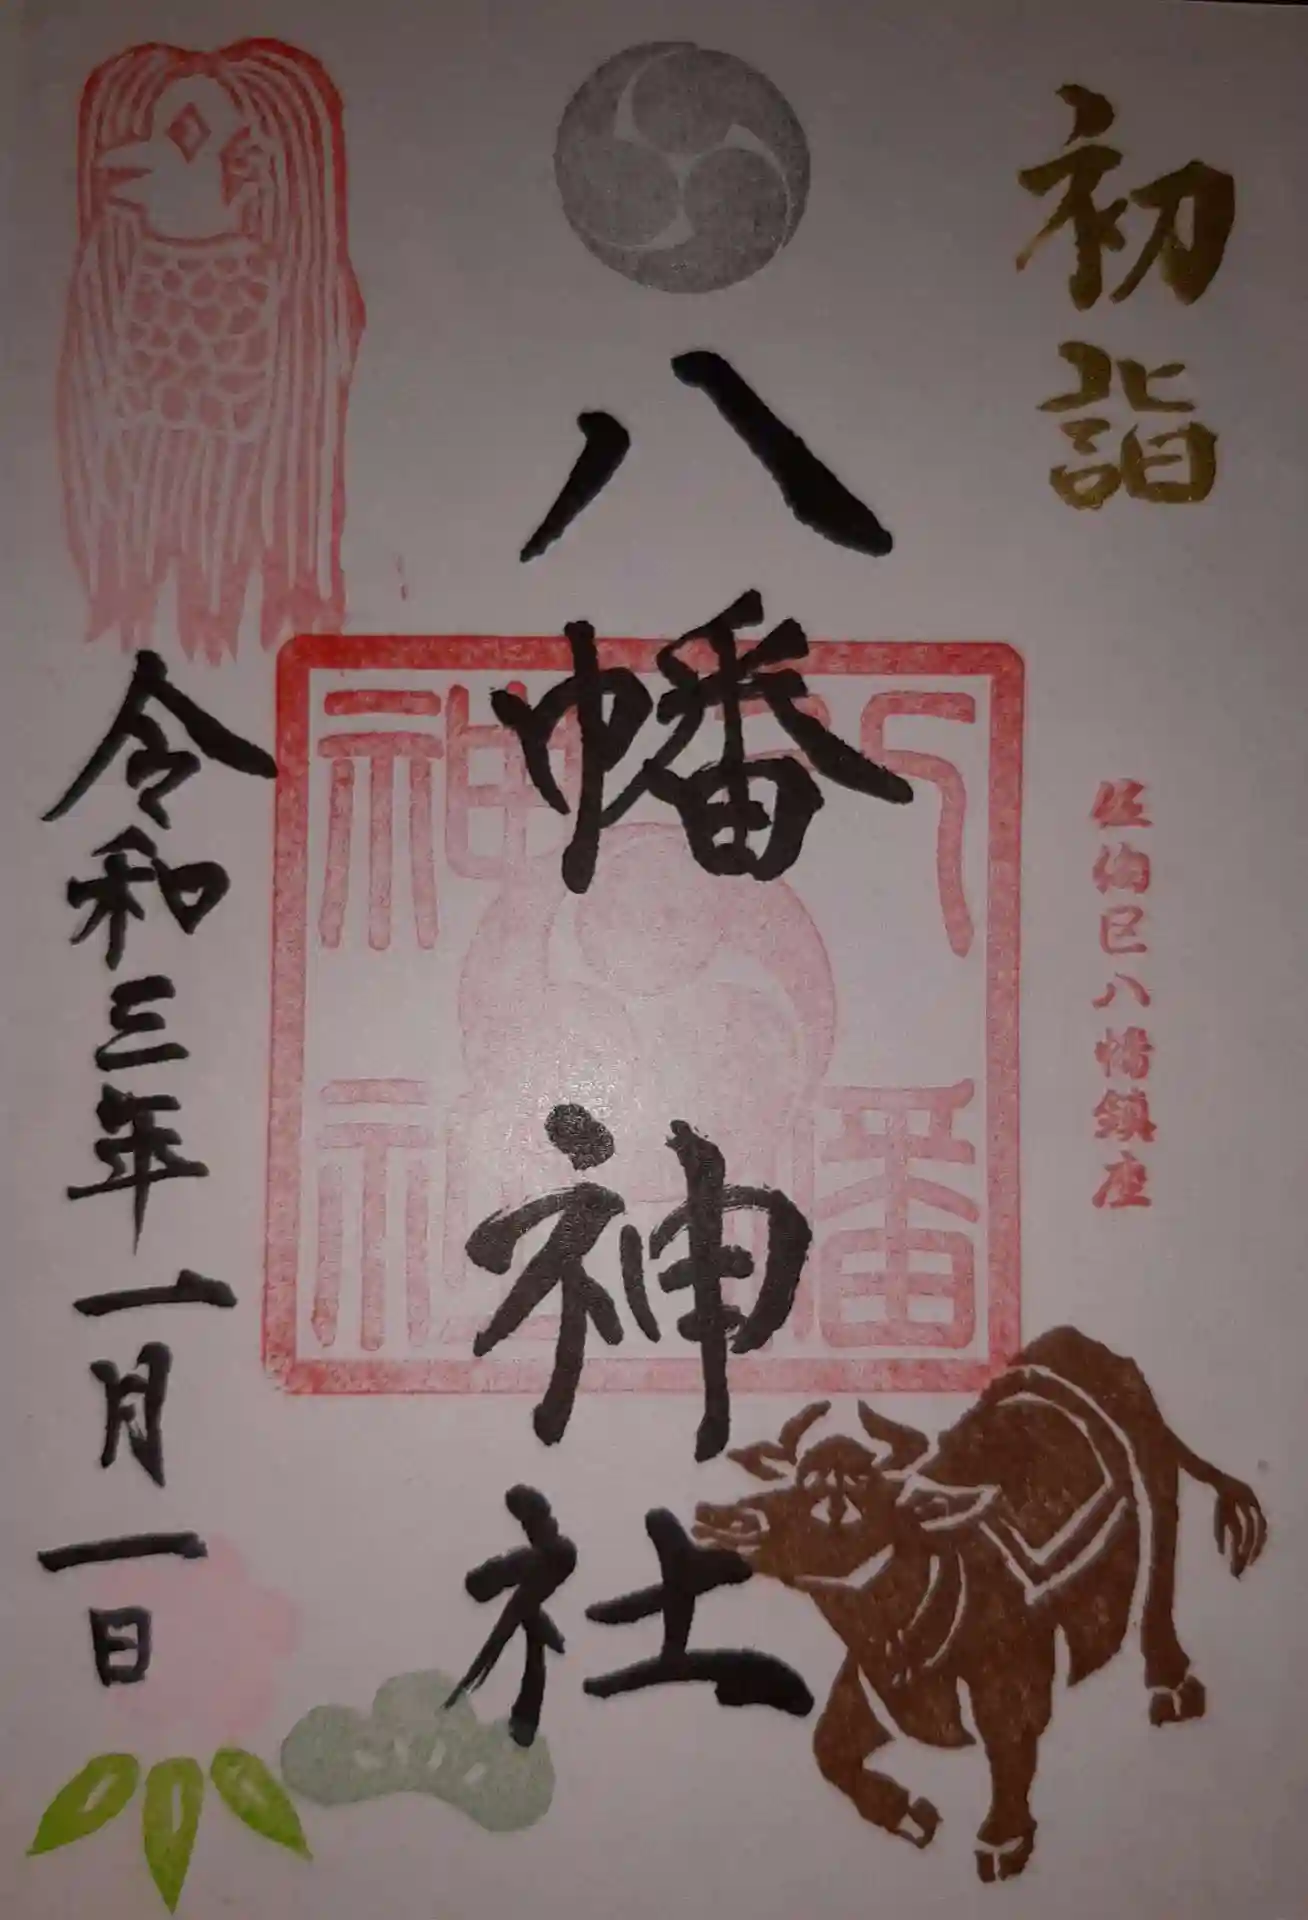 初詣
佐伯巳八幡鎮座
八幡神社
八幡
神社
令和三年一月一日